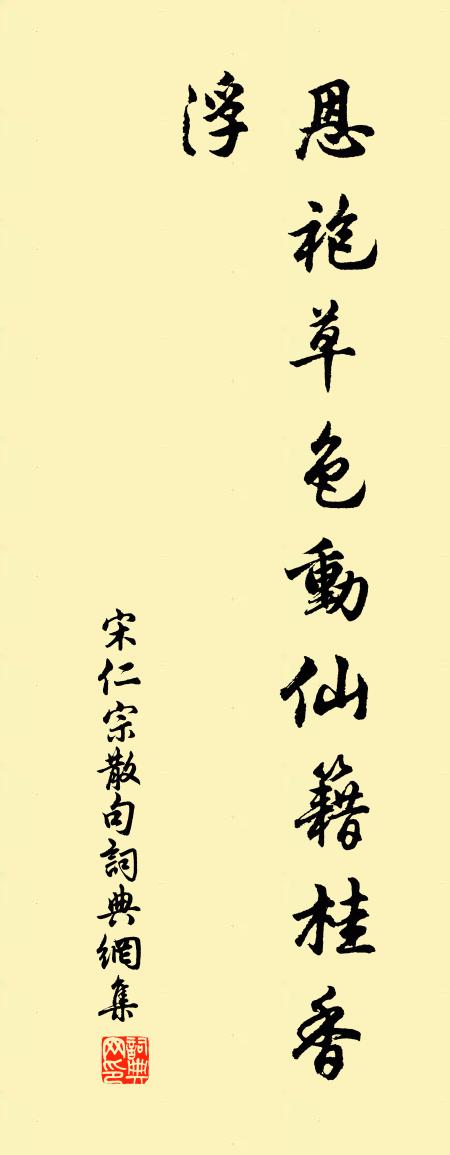 恩袍草色動仙籍桂香
浮
宋仁宗散句詞典網集
詞典网印